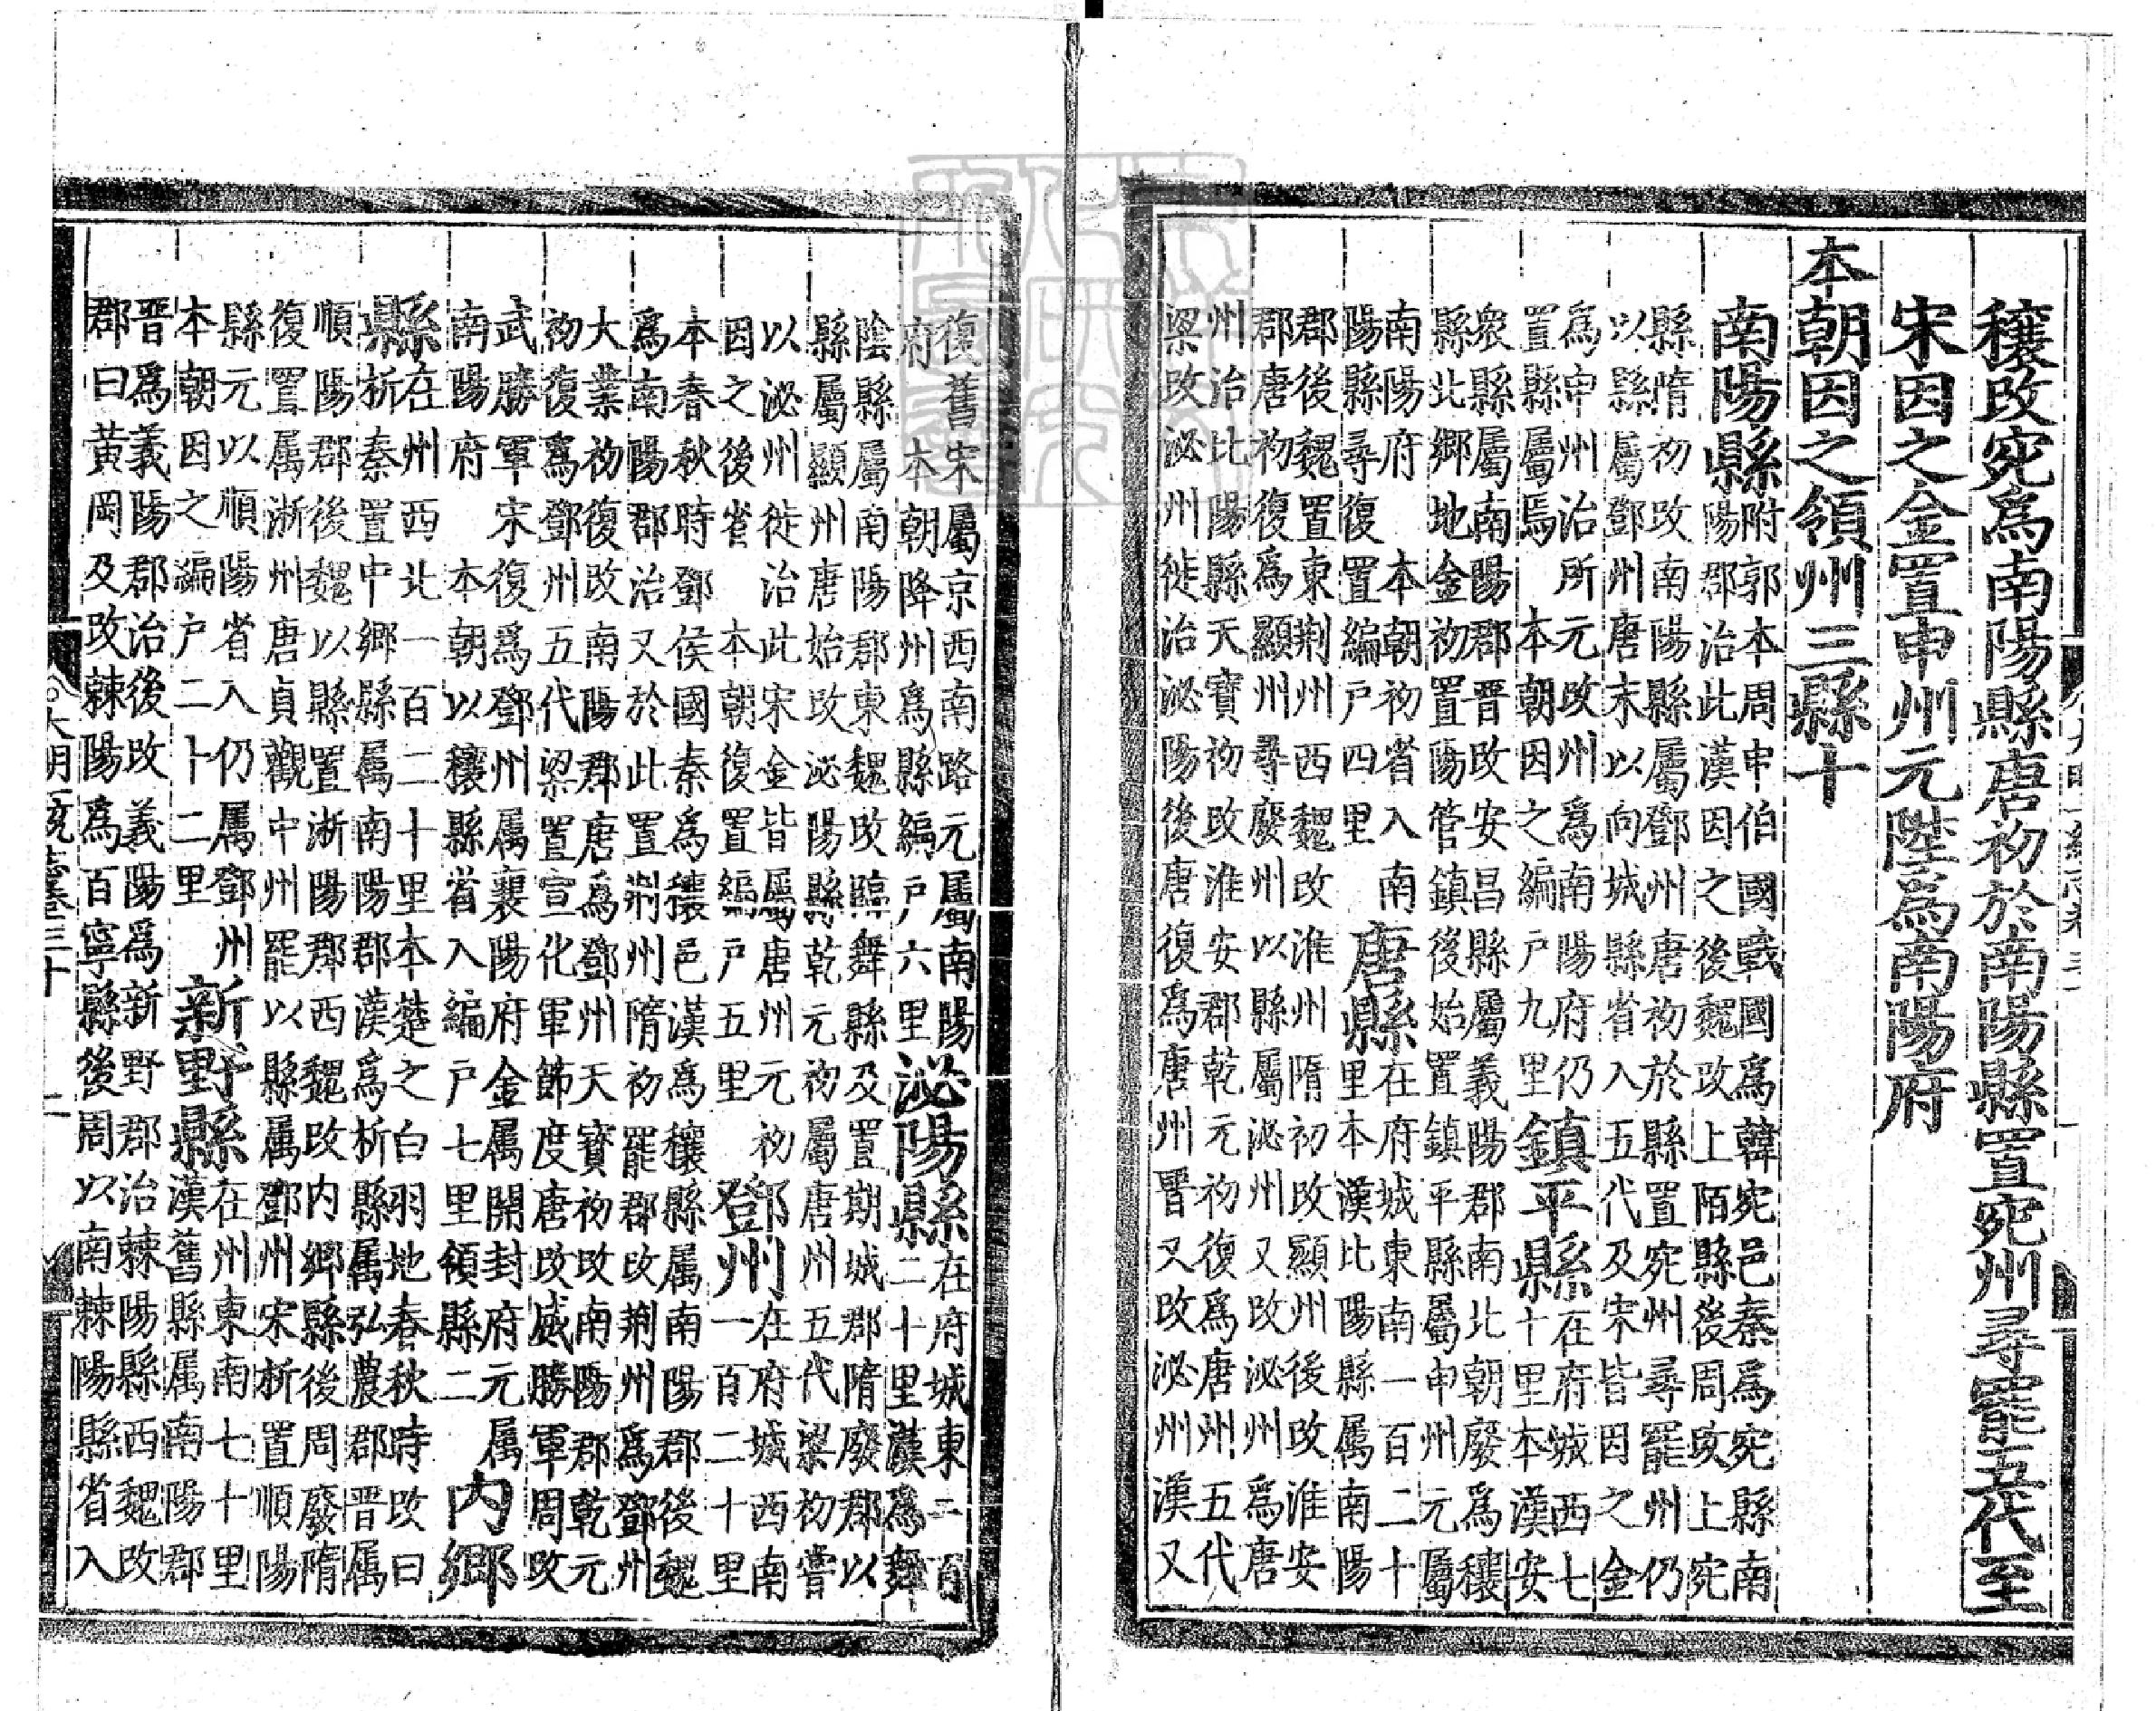 穰改宛爲南陽縣唐初於南陽縣置宛州尋罷五代至
宋因之金置申州元陞爲南陽府
本朝因之領州三縣十
南陽縣
附郭本周申伯國戰國爲韓宛邑秦爲宛縣南
陽郡治此漢因之後魏改上陌縣後周改上宛
縣隋初改南陽縣屬鄧州唐初於縣置宛州尋罷州仍
以縣屬鄧州唐末以向城縣省入五代及宋皆因之金
爲申州治所元改州爲南陽府仍
置縣屬焉 本朝因之編户九里
鎮平縣
在府城西七
十里本漢安
衆縣屬南陽郡晋改安昌縣屬義陽郡南北朝廢爲穰
縣北鄉地金初置陽管鎮後始置鎮平縣屬申州元屬
南陽府 本朝初省入南
陽縣尋復置編户四里
唐縣
在府城東南一百二十
里本漢比陽縣屬南陽
郡後魏置東荆州西魏改淮州隋初改顯州後改淮安
郡唐初復爲顯州尋廢州以縣屬泌州又改泌州爲唐
州治比陽縣天寶初改淮安郡乾元初復爲唐州五代
梁改泌州徙治泌陽後唐復爲唐州晋又改泌州漢又
復舊宋屬京西南路元屬南陽
府 本朝降州爲縣編户六里
泌陽縣
在府城東二百
二十里漢爲舞
陰縣屬南陽郡東魏改臨舞縣及置期城郡隋廢郡以
縣屬顯州唐始改泌陽縣乾元初屬唐州五代梁初嘗
以泌州徙治此宋金皆屬唐州元初
因之後省 本朝復置編户五里
鄧州
在府城西南
一百二十里
本春秋時鄧侯國秦爲穰邑漢爲穰縣属南陽郡後魏
爲南陽郡治又於此置荆州隋初罷郡改荆州爲鄧州
大業初復改南陽郡唐爲鄧州天寶初改南陽郡乾元
初復爲鄧州五代梁置宣化軍節度唐改威勝軍周改
武勝軍宋復爲鄧州属襄陽府金属開封府元属
南陽府 本朝以穰縣省入編户七里領縣二
内鄉
縣
在州西北一百二十里本楚之白羽地春秋時改曰
析秦置中鄉縣属南陽郡漢爲析縣属弘農郡晋属
順陽郡後魏以縣置淅陽郡西魏改内鄉縣後周廢隋
復置属淅州唐貞觀中州罷以縣属鄧州宋析置順陽
縣元以順陽省入仍属鄧州
本朝因之編户二十二里
新野縣
在州東南七十里
漢舊縣属南陽郡
晋爲義陽郡治後改義陽爲新野郡治棘陽縣西魏改
郡曰黄岡及改棘陽爲百寧縣後周以南棘陽縣省入
大明一統志卷三十 二